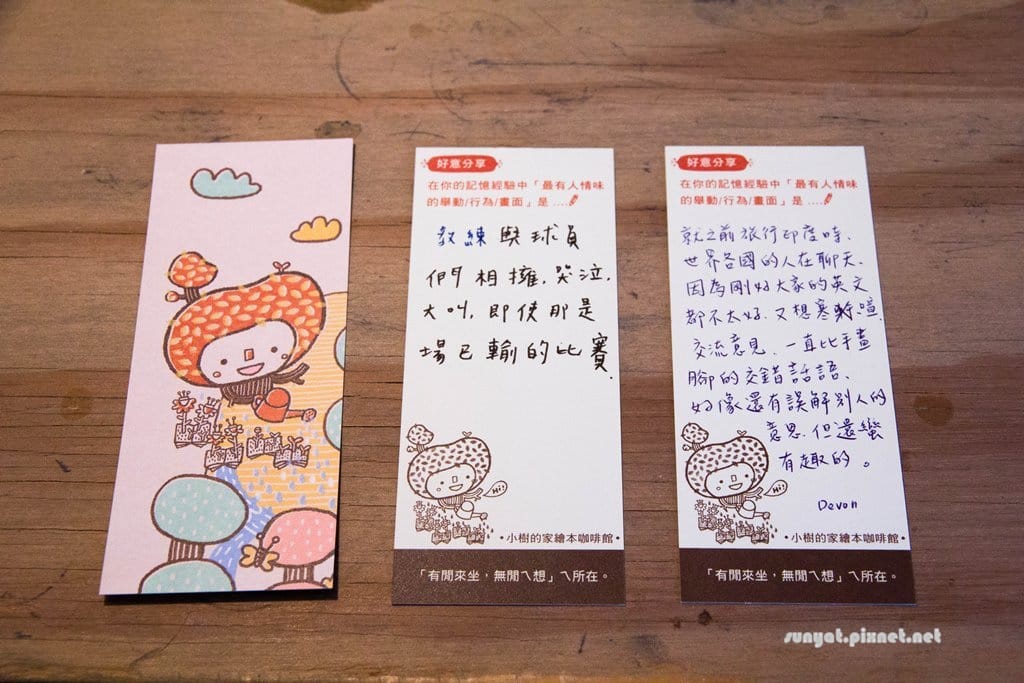 好意分享
在你的記憶經驗中「最有人情味
的舉動/行為/畫面」是 ....
教練與球員
們相擁,哭泣,
大叫,即使那是
場已輸的比賽.
Hi!
•小樹的家繪本咖啡館•
「有閒來坐，無閒ㄟ想」ㄟ所在。
好意分享
在你的記憶經驗中「最有人情味
的舉動/行為/畫面」是 ....
就之前旅行印度時、
世界各國的人在聊天、
因為剛好大家的英文
都不太好、又想寒暄、
交流意見、一直比手畫
腳的交錯話語、
好像還有誤解別人的
意思、但還蠻
有趣的。
Devon
Hi!
•小樹的家繪本咖啡館•
「有閒來坐，無閒ㄟ想」ㄟ所在。
sunyat.pixnet.net